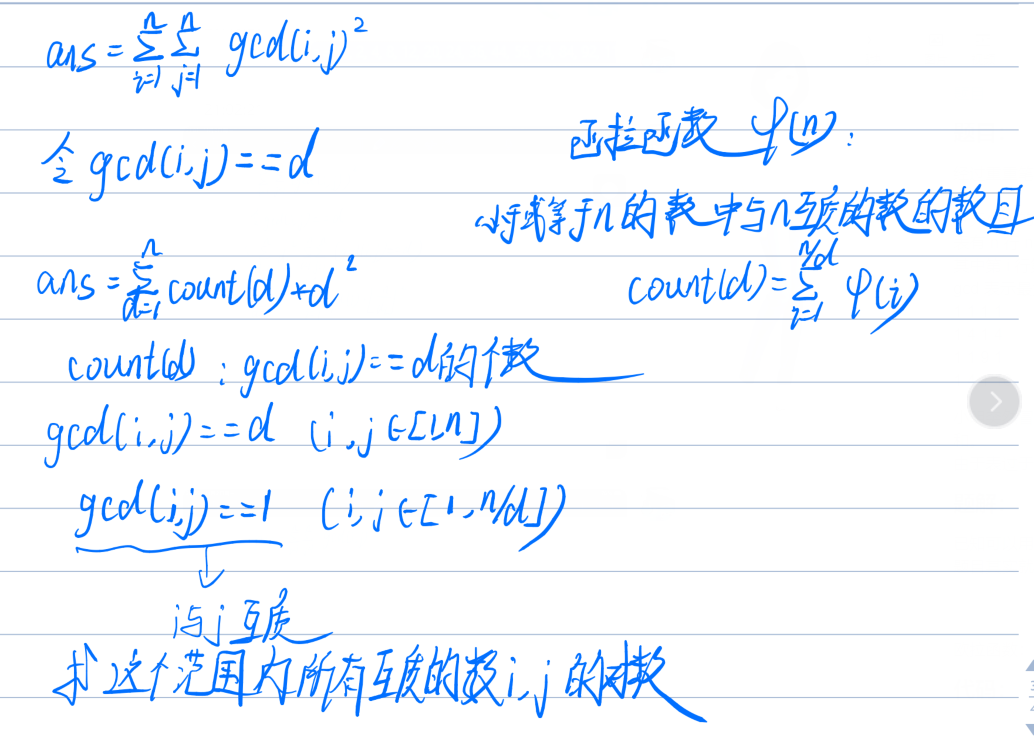 ans = \sum_{i=1}^{n} \sum_{j=1}^{n} gcd(i,j)^2
令 gcd(i,j)==d
ans = \sum_{d=1}^{n} count(d)*d^2
count(d):gcd(i,j)==d的个数
gcd(i,j)==d (i,j∈[1,n])
gcd(i,j)==1 (i,j∈[1,n/d])
i与j互质
求这个范围内所有互质的数i,j的对数
函拉函数 φ(n):
小于或等于n的数中与n互质的数的数目
count(d)=\sum_{i=1}^{n/d} φ(i)